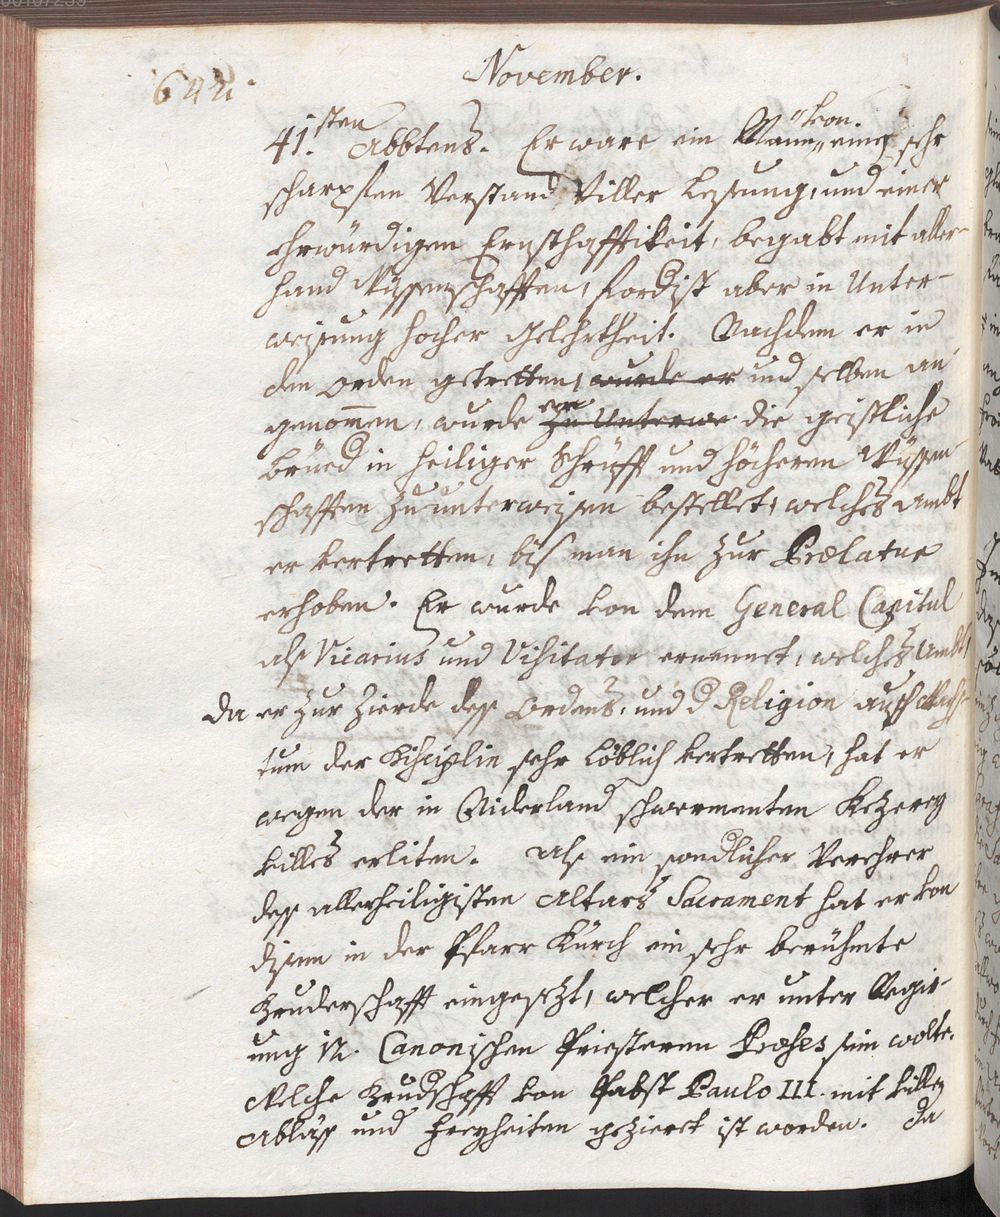 00107239
November.
642.
41.sten Abbtens. Er ware ein Mann von einer sehr
scharpfen Verstand viller Lesung, und einer
ehrwürdigen Ernsthafftikeit, begabt mit aller-
hand Wüssenschafften, fordist aber in Unter-
weisung hocher Gelehrtheit. Nachdem er in
den Orden getretten, wurde er und selben an-
genommen, wurde er zu Unterwe die geistliche
Brüed in heiliger Schrüfft und höcheren Wüssen-
schafften zu unterweisen bestellet, welches Ambt
er vertretten, biß man ihn zur Prælatur
erhoben. Er wurde von dem General Capitul
als Vicarius und Visitator ernennet, welches Ambt,
da er zur Zierde deß Ordens, und d Religion auffwachs-
tum der Disciplin sehr löblich vertretten, hat er
wegen der in Niderland schwermenten Kezerey
villes erliten. Als ein sondlicher Verehrer
deß allerheiligisten Altars Sacrament hat er von
disem in der Pfarr Kürch ein sehr berühmte
Bruderschafft eingesezt, welcher er unter Regir-
ung 12. Canonischen Priesteren Præses sein wolte.
Welche Brudschafft von Pabst Paulo III. mit villen
Abläss und Freyheiten gezieret ist worden. Da